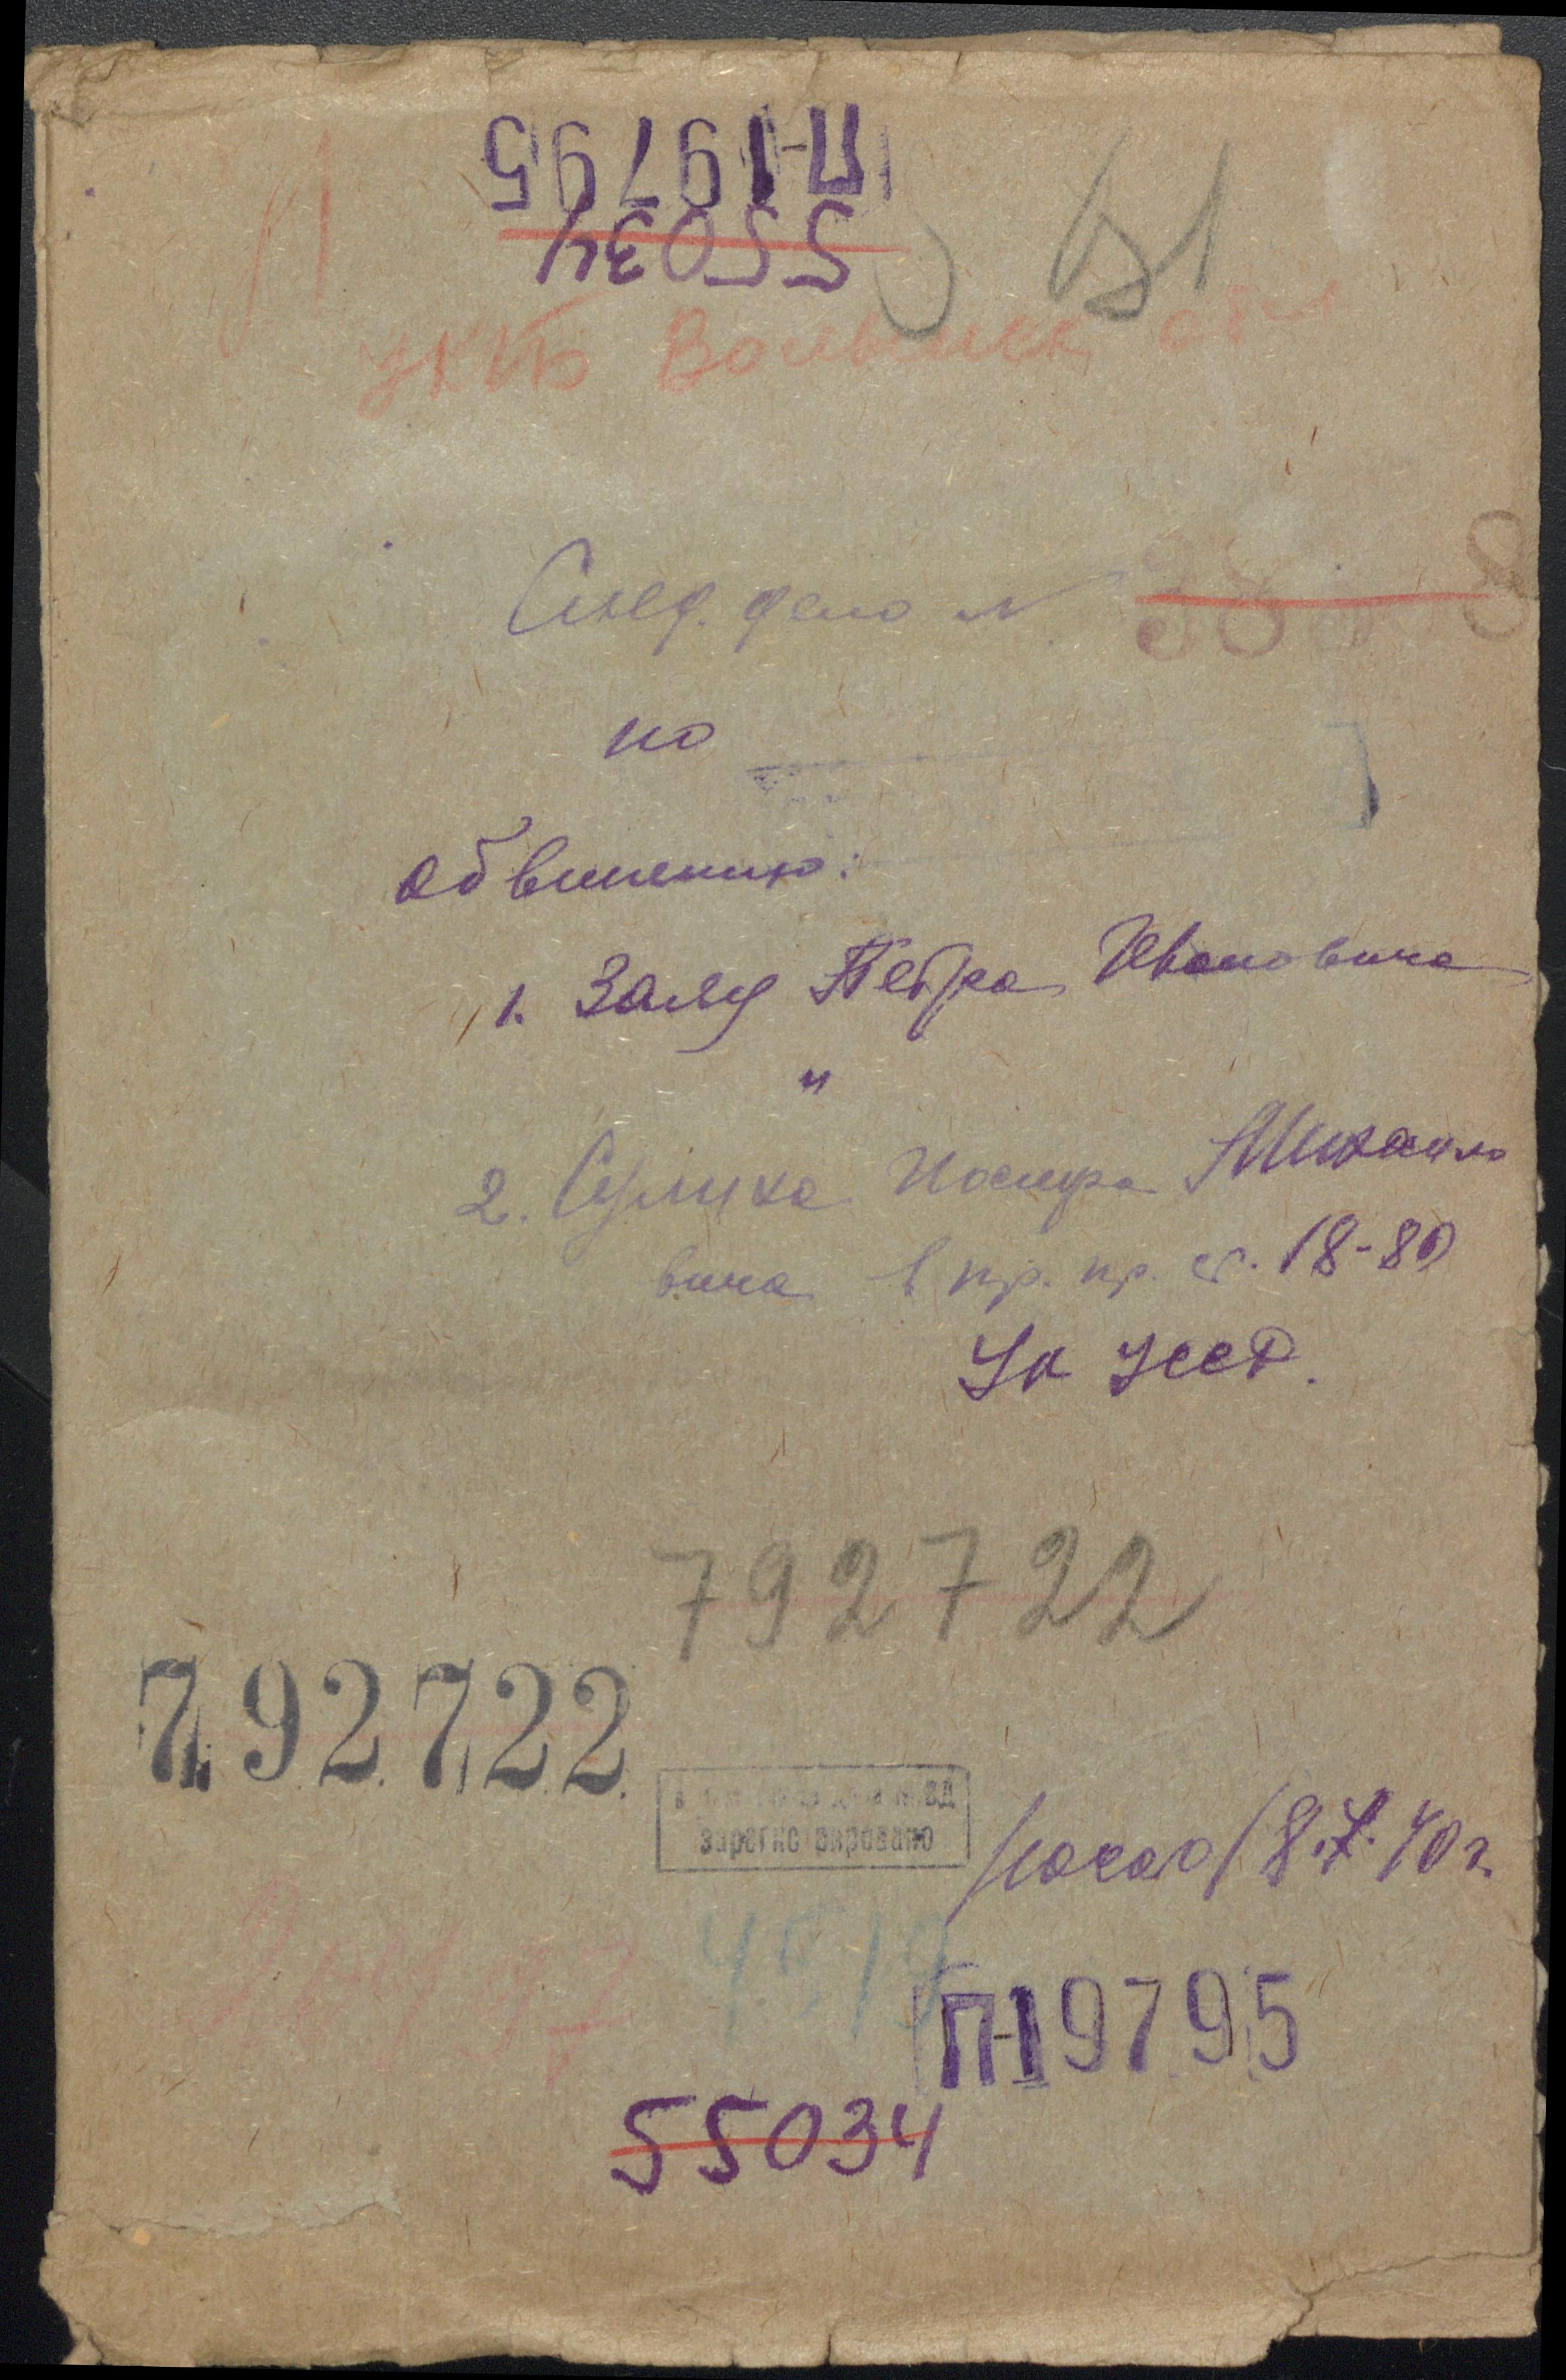 П-19795
55034
УКГБ Волынск обл
След. дело №
по
обвинению:
1. Заяц Петра Ивановича
и
2. Сулика Иосифа Михайло
вича в пр. пр. ст. 18-80
УК УССР.
792722
792722
зарегистрировано
Начато 18.X.40 г.
4519
П-19795
55034